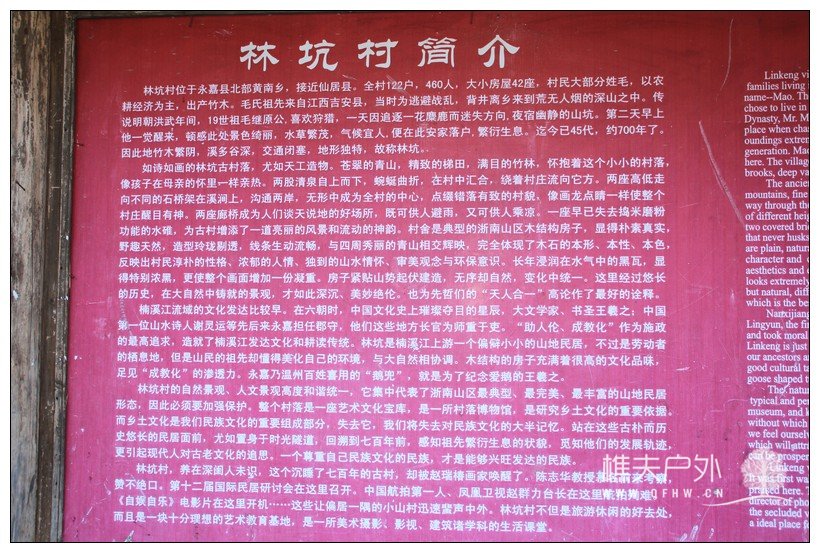 林坑村简介
林坑村位于永嘉县北部黄南乡，接近仙居县。全村122户，460人，大小房屋42座，村民大部分姓毛，以农
耕经济为主，出产竹木。毛氏祖先来自江西吉安县，当时为逃避战乱，背井离乡来到荒无人烟的深山之中。传
说明朝洪武年间，19世祖毛继原公，喜欢狩猎，一天因追逐一花麂鹿而迷失方向，夜宿幽静的山坑。第二天早上
他一觉醒来，顿感此处景色绮丽，水草繁茂，气候宜人，便在此安家落户，繁衍生息。迄今已45代，约700年了。
因此地竹木繁阴，溪多谷深，交通闭塞，地形独特，故称林坑。
如诗如画的林坑古村落，尤如天工造物。苍翠的青山，精致的梯田，满目的竹林，怀抱着这个小小的村落，
像孩子在母亲的怀里一样亲热。两股清泉自上而下，蜿蜒曲折，在村中汇合，绕着村庄流向它方。两座高低走
向不同的石桥架在溪涧上，沟通两岸，无形中成为全村的中心，点缀错落有致的村貌，像画龙点睛一样使整个
村庄醒目有神。两座廊桥成为人们谈天说地的好场所，既可供人避雨，又可供人乘凉。一座早已失去捣米磨粉
功能的水碓，为古村增添了一道亮丽的风景和流动的神韵。村舍是典型的浙南山区木结构房子，显得朴素真实，
野趣天然，造型玲珑剔透，线条生动流畅，与四周秀丽的青山相交辉映，完全体现了木石的本形、本性、本色，
反映出村民淳朴的性格、浓郁的人情、独到的山水情怀、审美观念与环保意识。长年浸润在水气中的黑瓦，显
得特别浓黑，更使整个画面增加一份凝重。房子紧贴山势起伏建造，无序却自然，变化中统一。这里经过悠长
的历史，在大自然中铸就的景观，才如此深沉、美妙绝伦。也为先哲们的“天人合一”高论作了最好的诠释。
楠溪江流域的文化发达比较早。在六朝时，中国文化史上璀璨夺目的星辰，大文学家、书圣王羲之；中国
第一位山水诗人谢灵运等先后来永嘉担任郡守，他们这些地方长官为师重于吏。“助人伦、成教化”作为施政
的最高追求，造就了楠溪江发达文化和耕读传统。林坑是楠溪江上游一个偏僻小小的山地民居，不过是劳动者
的栖息地，但是山民的祖先却懂得美化自己的环境，与大自然相协调。木结构的房子充满着很高的文化品味，
足见“成教化”的渗透力。永嘉乃温州百姓喜用的“鹅兜”，就是为了纪念爱鹅的王羲之。
林坑村的自然景观、人文景观高度和谐统一，它集中代表了浙南山区最典型、最完美、最丰富的山地民居
形态，因此必须要加强保护。整个村落是一座艺术文化宝库，是一所村落博物馆，是研究乡土文化的重要依据。
而乡土文化是我们民族文化的重要组成部分，失去它，我们将失去对民族文化的大半记忆。站在这些古朴而历
史悠长的民居面前，尤如置身于时光隧道，回溯到七百年前，感知祖先繁衍生息的状貌，觅知他们的发展轨迹，
更引起现代人对古老文化的追思。一个尊重自己民族文化的民族，才是能够兴旺发达的民族。
林坑村，养在深闺人未识，这个沉睡了七百年的古村，却被赵瑞椿画家唤醒了。陈志华教授慕名前来考察，
赞不绝口。第十二届国际民居研讨会在这里召开。中国航拍第一人、凤凰卫视赵群力台长在这里航拍遇难。
《自娱自乐》电影片在这里开机……这些让偏居一隅的小山村迅速蜚声中外。林坑村不但是旅游休闲的好去处，
而且是一块十分理想的艺术教育基地，是一所美术摄影、影视、建筑诸学科的生活课堂。
Linkeng vi
families living
name--Mao. The
chose to live in
Dynasty, Mr. M
place when chas
oundings extrem
generation. Mao
here. The village
brooks, deep va
The ancien
mountains, fine
way through the
of different heig
two covered brid
that never husks
are plain, natura
character and
aesthetics and c
looks extremely
but natural, diff
which is the bes
Nanxijiang
Lingyun, the fir
and took moral
Linkeng is just
our ancestors a
good cultural ta
goose shaped t
The natur
typical and per
museum, and k
without which
we feel ourselv
which will attra
can be prosper
Linkeng v
It was first
praised here. T
director of pho
the secluded v
a ideal place f
樵夫户外
QFHW.CN